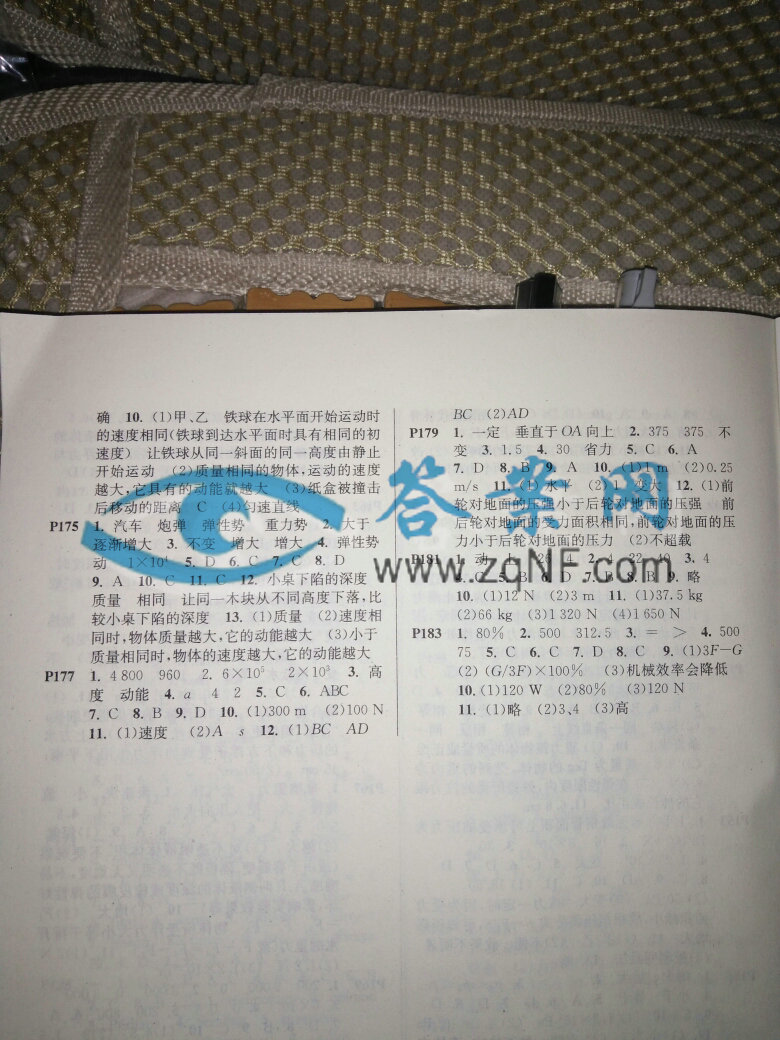 确 10. (1)甲、乙 铁球在水平面开始运动时
的速度相同(铁球到达水平面时具有相同的初
速度) 让铁球从同一斜面的同一高度由静止
开始运动 (2)质量相同的物体,运动的速度
越大,它具有的动能就越大 (3)纸盒被撞击
后移动的距离 C (4)匀速直线
P175 1. 汽车 炮弹 弹性势 重力势 2. 大于
逐渐增大 3. 不变 增大 增大 4. 弹性势
动 1×10⁴ 5. D 6. C 7. C 8. D
9. A 10. C 11. C 12. 小桌下陷的深度
质量 相同 让同一木块从不同高度下落,比
较小桌下陷的深度 13. (1)质量 (2)速度相
同时,物体质量越大,它的动能越大 (3)小于
质量相同时,物体的速度越大,它的动能越大
P177 1. 4 800 960 2. 6×10⁵ 2×10³ 3. 高
度 动能 4. a 4 2 5. C 6. ABC
7. C 8. B 9. D 10. (1)300 m (2)100 N
11. (1)速度 (2)A s 12. (1)BC AD
BC (2)AD
P179 1. 一定 垂直于OA向上 2. 375 375 不
变 3. 1.5 4. 30 省力 5. C 6. A
7. D 8. B 9. A 10. (1)1 m (2)0.25
m/s 11. (1)水平 (2) 变大 12. (1)前
轮对地面的压强小于后轮对地面的压强 前
后轮对地面的受力面积相同,前轮对地面的压
力小于后轮对地面的压力 (2)不超载
P181 1. 动 2. 4 22 40 3. 4
C 5. B 6. D 7. B 8. B 9. 略
10. (1)12 N (2)3 m 11. (1)37.5 kg
(2)66 kg (3)1 320 N (4)1 650 N
P183 1. 80% 2. 500 312.5 3. = > 4. 500
75 5. C 6. C 7. D 8. C 9. (1)3F-G
(2) (G/3F)×100% (3)机械效率会降低
10. (1)120 W (2)80% (3)120 N
11. (1)略 (2)3、4 (3)高
答案网
www.zqNF.com